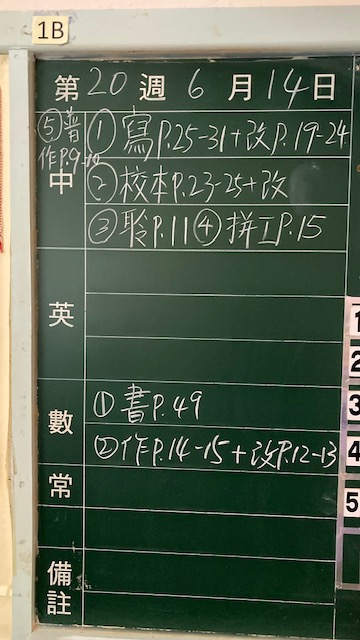 1B
第20週6月14日
⑤普
作P.9-10
中
①寫P.25-31+改P.19-24
②校本P.23-25+改
③聆P.11④拼工P.15
英
數
①書P.49
②作P.14-15+改P.12-13
常
備註
1
2
3
4
5